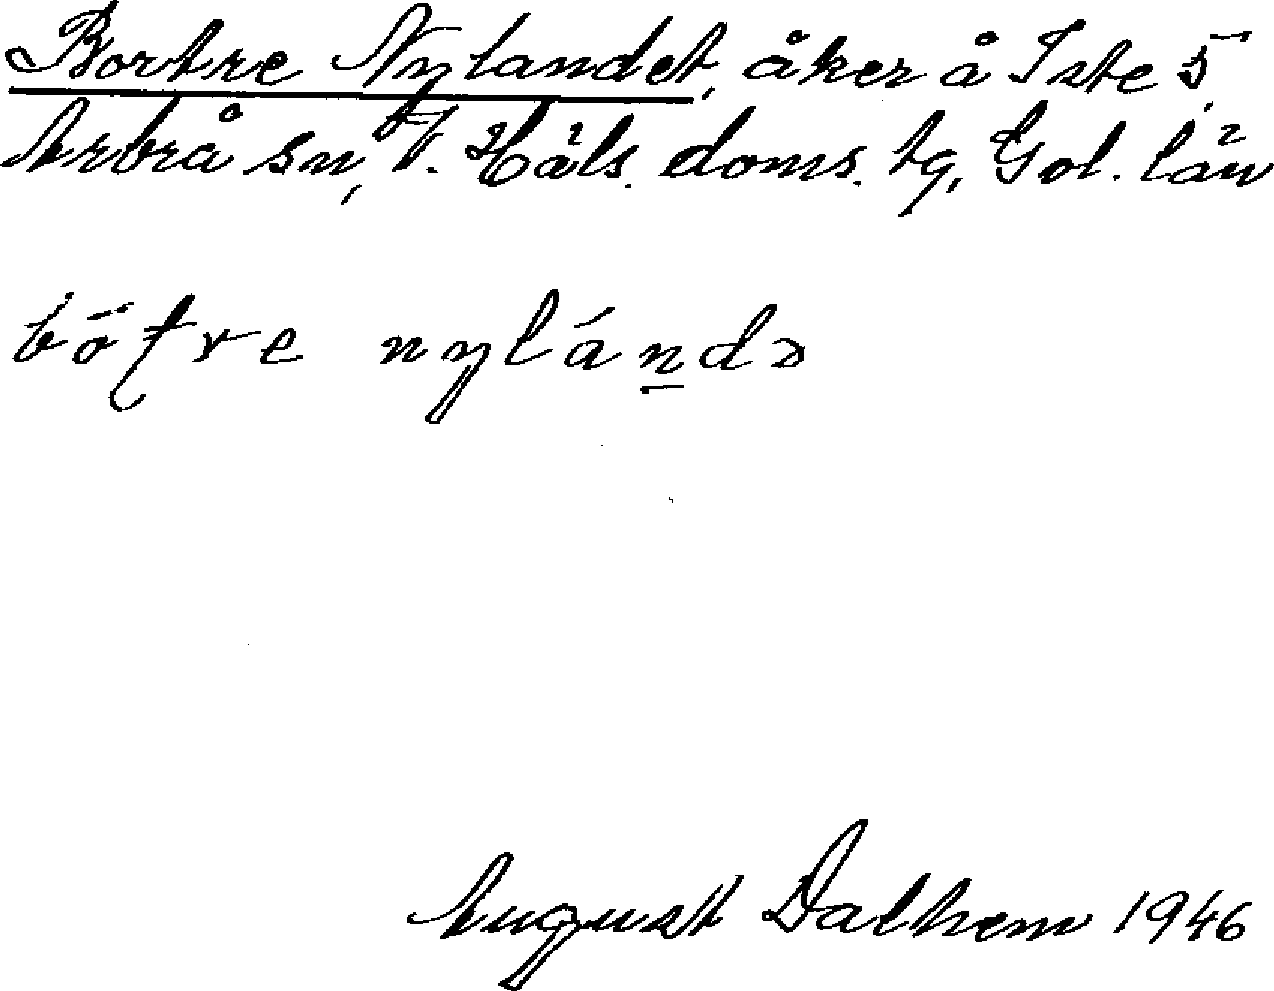 Bortre Nylandet, åker å Iste 5,
Arbrå sn, V. Häls. doms. tg, Gol. län
bötre nylándə
August Dalhem 1946